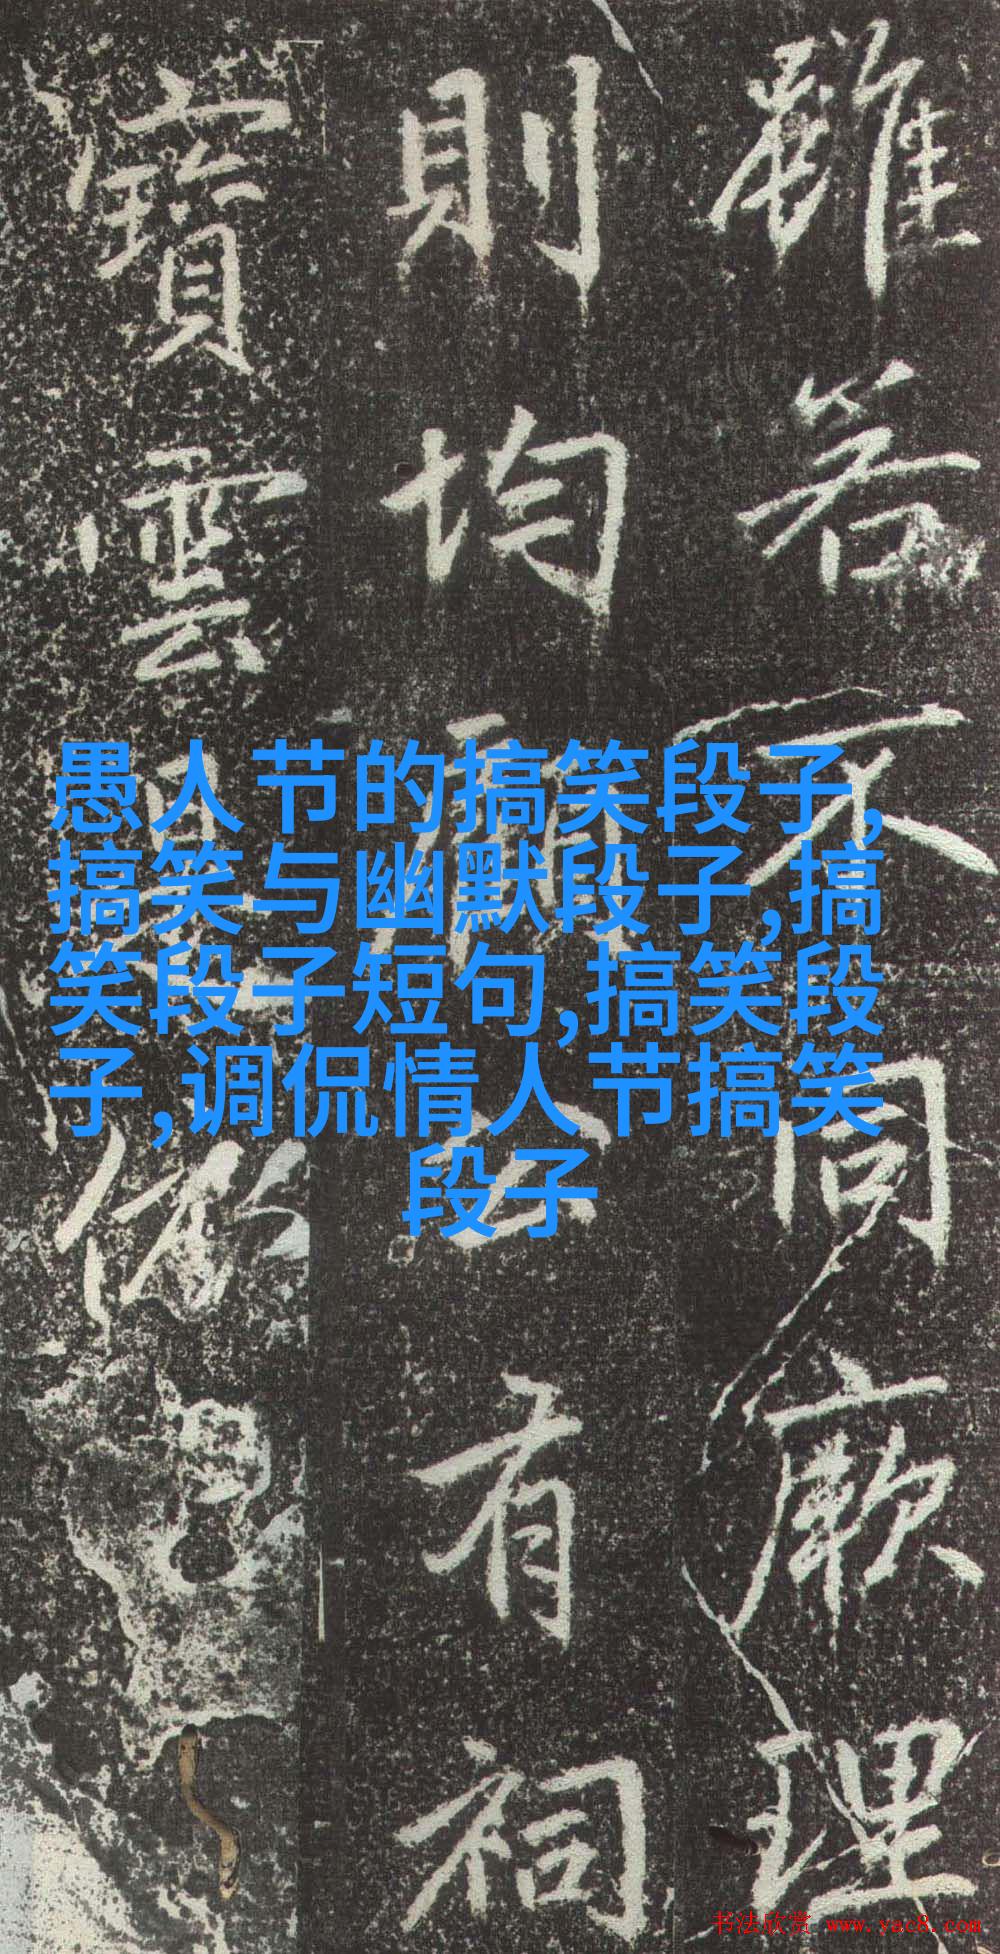 雖若不同厥理
則均願言有祠
寶雲
愚人节的搞笑段子,
搞笑与幽默段子,搞
笑段子短句,搞笑段
子,调侃情人节搞笑
段子
书法欣赏 www.yac8.com